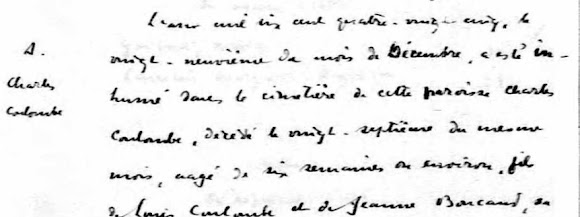 L'an mil six cent quatre-vingt-cinq, le
S.
vingt-neuvième du mois de Décembre, a esté in-
Charles
humé dans le cimetière de cette paroisse Charles
Coulombe
Coulombe, décédé le vingt-septième du mesme
mois, aagé de six semaines ou environ, fil
de Louis Coulombe et de Jeanne Boucault, sa